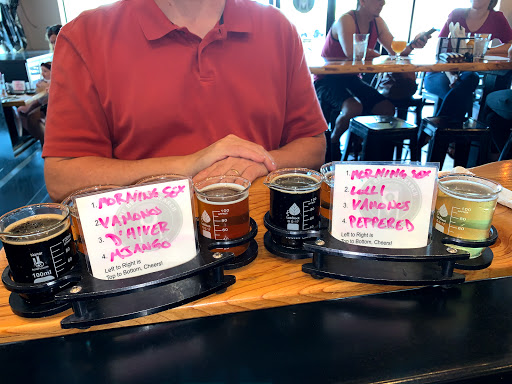 1. MORNING SEX
2. VAMONOS
3. D'HIVER
4. ASANGO
Left to Right is
Top to Bottom, Cheers!
1. MORNING SEX
2. LOLLI
3. VAMONOS
4. PEPPERED
Left to Right is
Top to Bottom, Cheers!
100ml